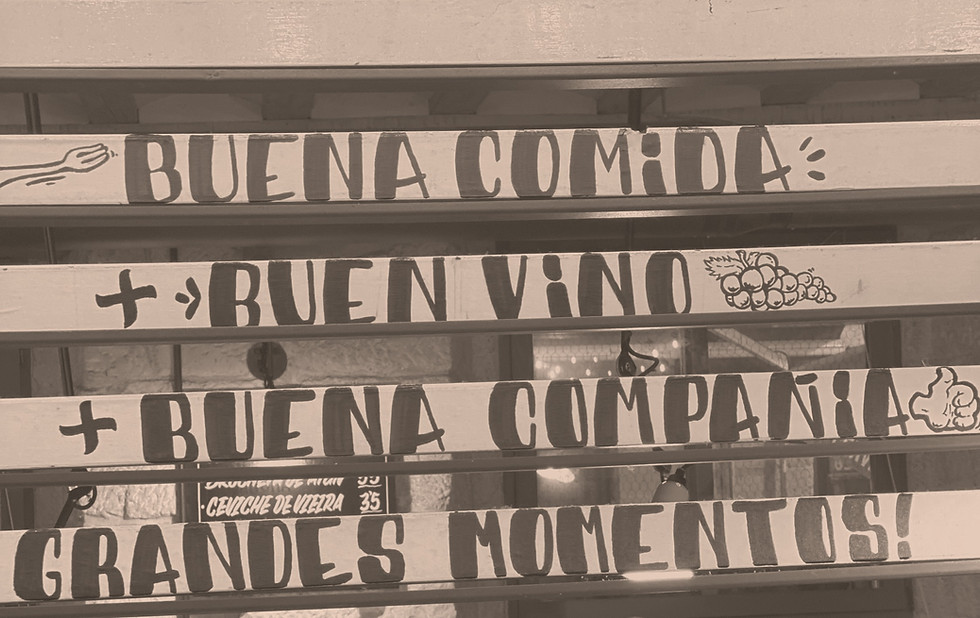 BUENA COMiDA
+ BUEN ViNO
+ BUENA COMPAÑiA
BROCHETA DE ATUN 35
· CEVICHE DE VIEIRA 35
GRANDES MOMENTOS!